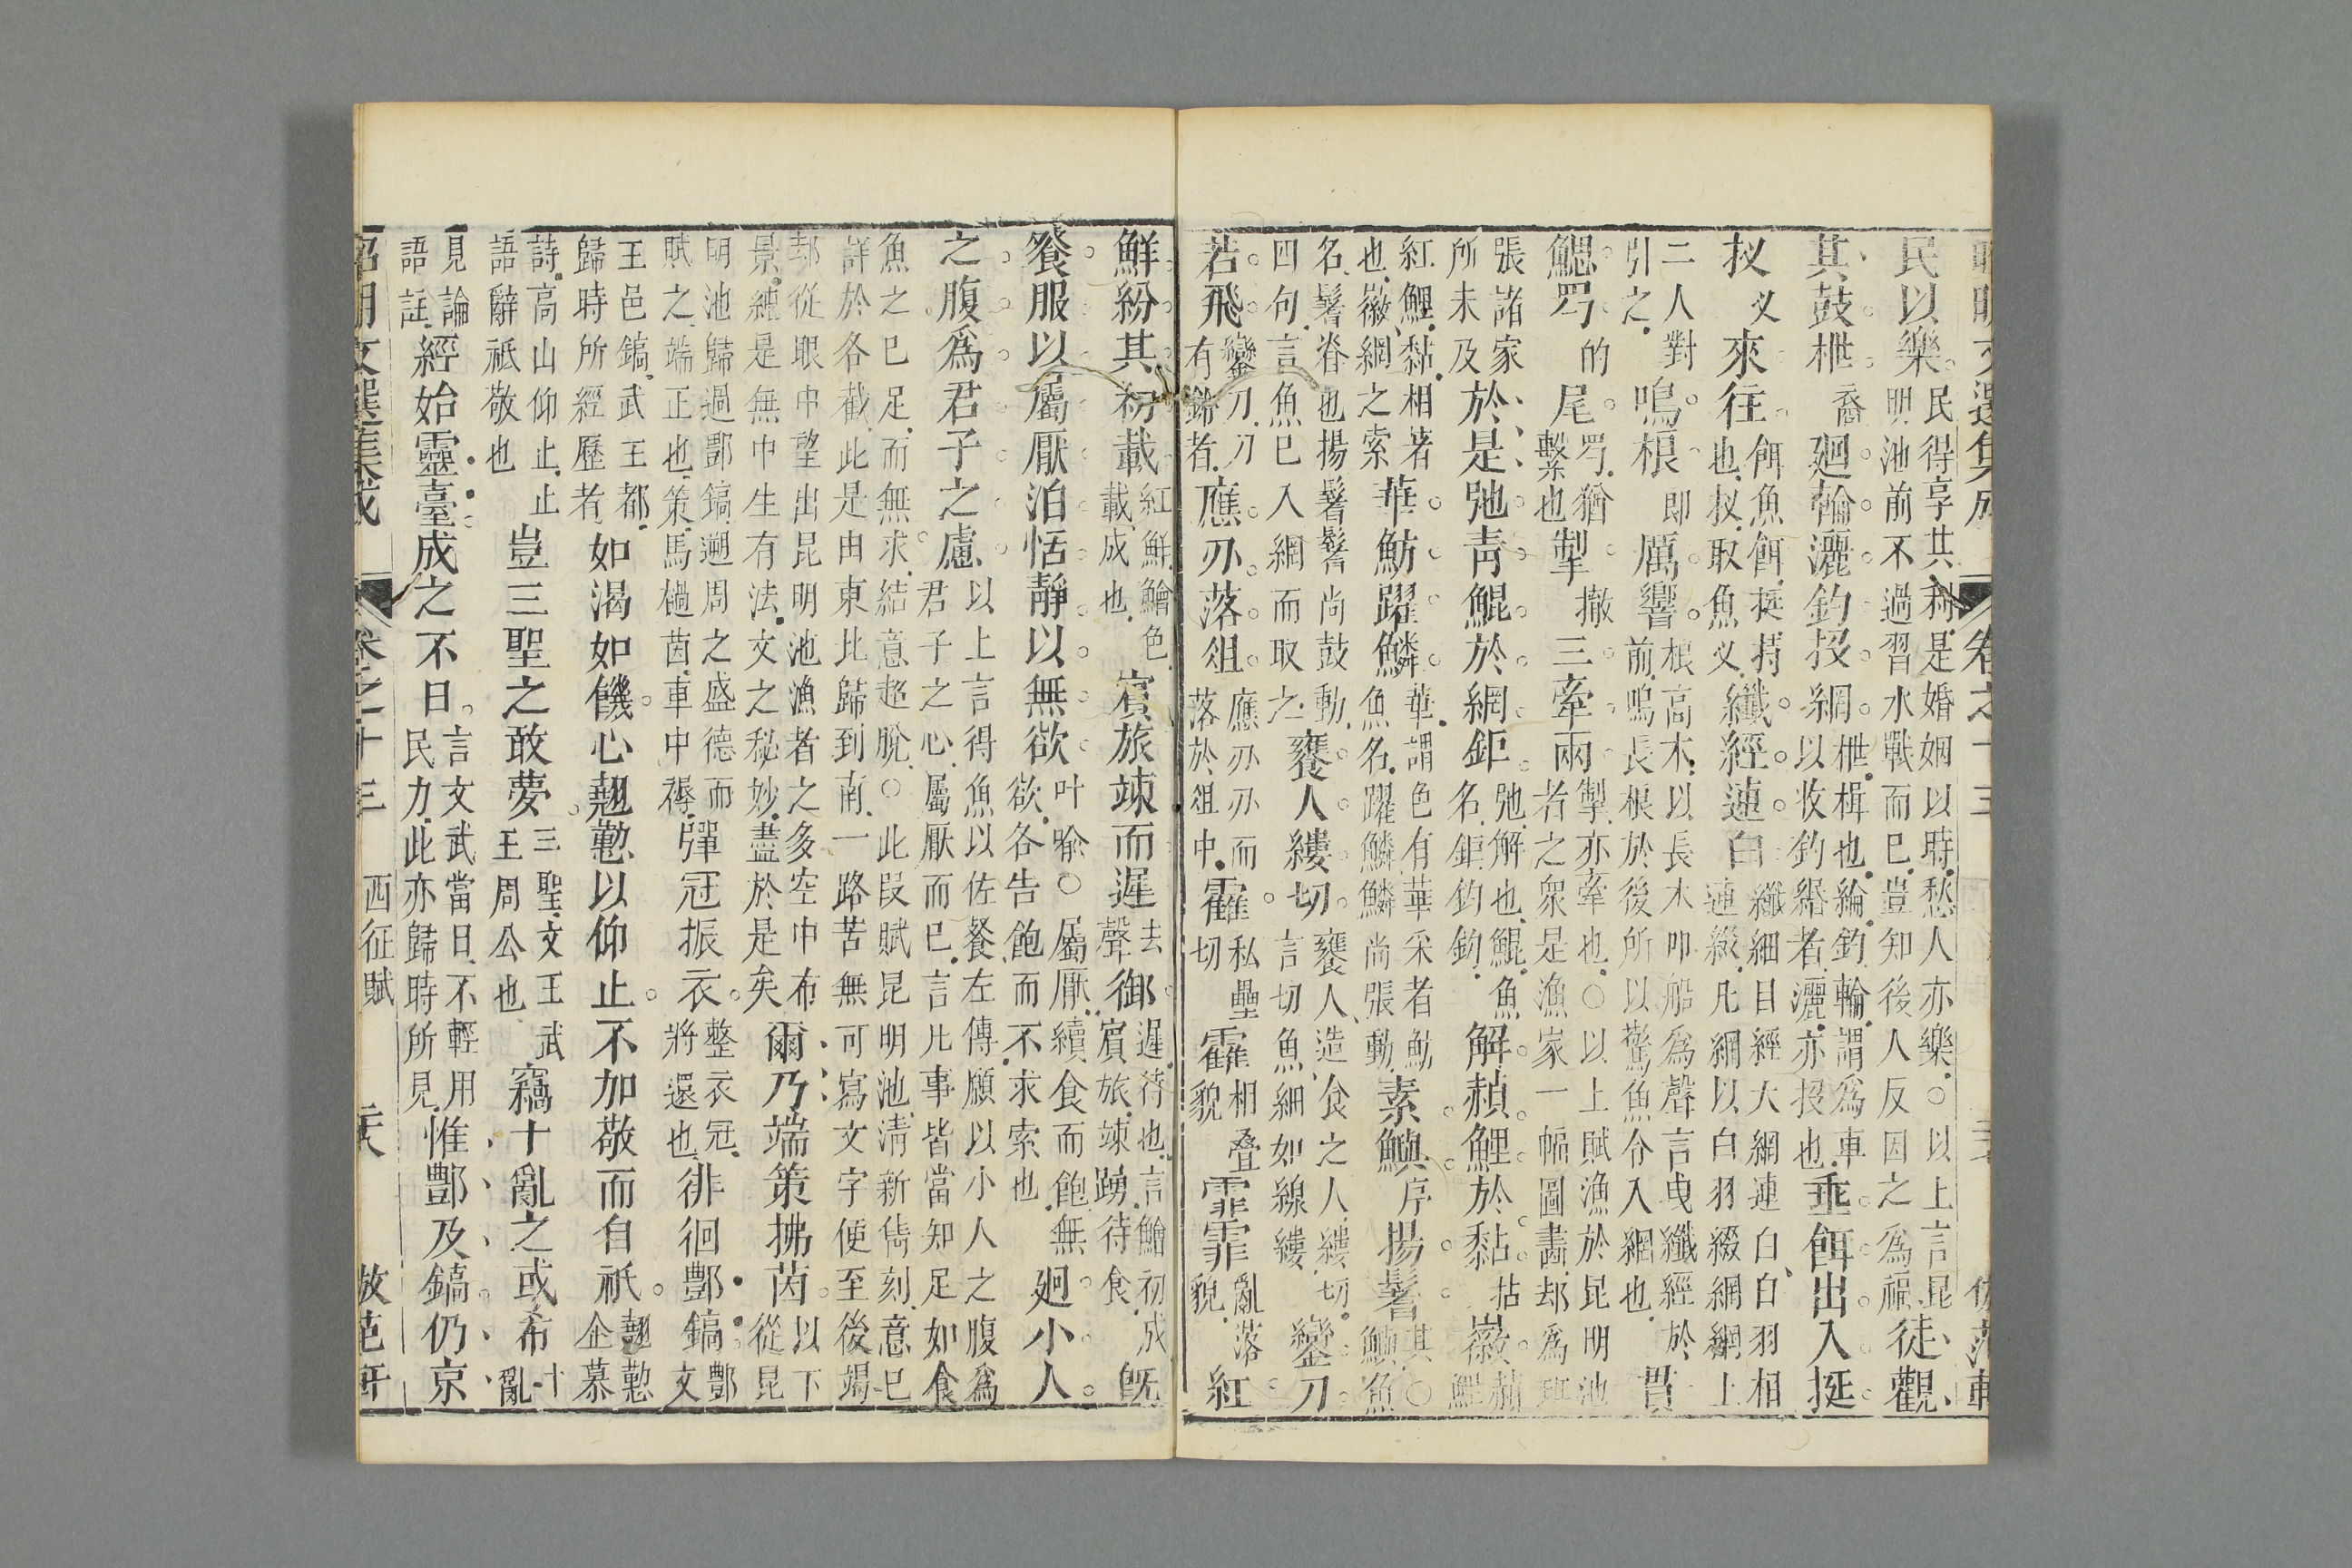 昭明文選集成 卷之十三
民以樂。民得享其利是婚姻以時愁人亦樂○以上言昆明池前不過習水戰而巳豈知後人反因之爲福徒觀
其鼓枻裔廻輪灑釣投網枻楫也綸釣輪謂爲車以收釣緡者灑亦投也垂餌出入挺
扠义來往餌魚餌挺拷也扠取魚义纖經連白纖細目經大網連白白羽相連綴凡網以白羽綴網網上
二人對引之鳴根即厲響根高木以長木叩船爲聲言曳纖經於前鳴長根於後所以驚魚令入網也貫
鰓𦊙的尾𦊙猶繫也掣撤三牽兩掣亦牽也○以上賦漁於昆明池者之衆是漁家一幅圖畵却爲班
張諸家所未及於是弛青鯤於網鉅弛解也鯤魚名鉅釣鈎解赬鯉於黏拈徽赬鯉
紅鯉黏相著也徽網之索華魴躍鱗華謂色有華采者魴魚名躍鱗鱗尚張動素鱮序揚鬐其○鱮魚
名鬐脊也揚鬐鬐尚鼓動四句言魚巳入網而取之饔人縷切饔人造食之人縷切言切魚細如線縷鑾刀
若飛鑾刀刀有鈴者應刃落俎應刃刃而落於俎中霍私壘切霍相疊貌霏霏亂落貌紅
鮮紛其初載紅鮮鱠色載成也賓旅竦而遲去聲御遲待也言鱠初成賓旅竦踴待食旣
餐服以屬厭泊恬靜以無欲叶喻○屬厭續食而飽無欲各告飽而不求索也廻小人
之腹爲君子之慮以上言得魚以佐餐左傳願以小人之腹爲君子之心屬厭而巳言凡事皆當知足如食
魚之巳足而無求結意超脫○此段賦昆明池清新雋刻意巳詳於各截此是由東比歸到南一路苦無可寫文字使至後竭
却從眼中望出昆明池漁者之多空中布景純是無中生有法文之秘妙盡於是矣爾乃端策拂茵以下從昆
明池歸過酆鎬遡周之盛德而賦之端正也策馬檛茵車中褥彈冠振衣整衣冠將還也徘徊酆鎬酆文
王邑鎬武王都歸時所經歷者如渴如饑心翹懃以仰止不加敬而自祇翹懃企慕
詩高山仰止止語辭祗敬也豈三聖之敢夢三聖文王武王周公也竊十亂之或希十亂
見論語註經始靈臺成之不日言文武當日不輕用民力此亦歸時所見惟酆及鎬仍京
昭明文選集成 卷之十三 西征賦